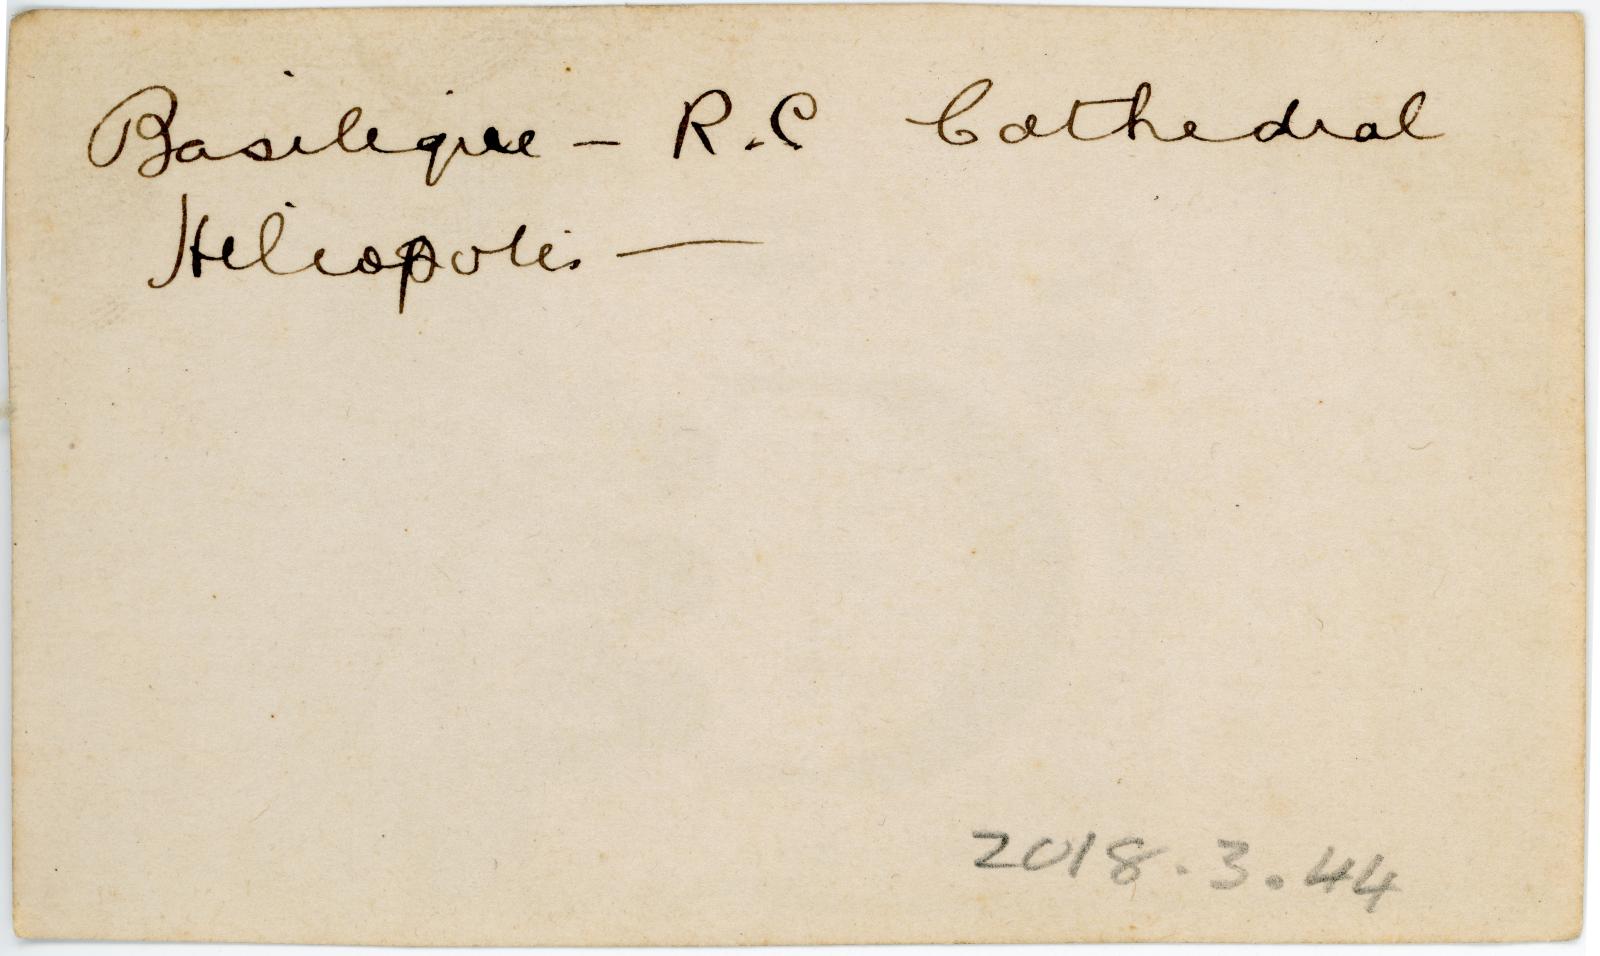 Basilique - R.C Cathedral
Heliopolis —
2018.3.44